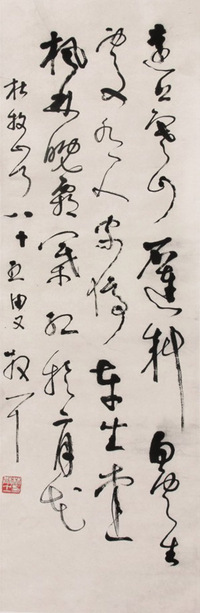 遠上寒山石逕斜白雲生
處有人家停車坐愛
楓林晚霜葉紅於二月花
杜牧山行八十五叟散耳